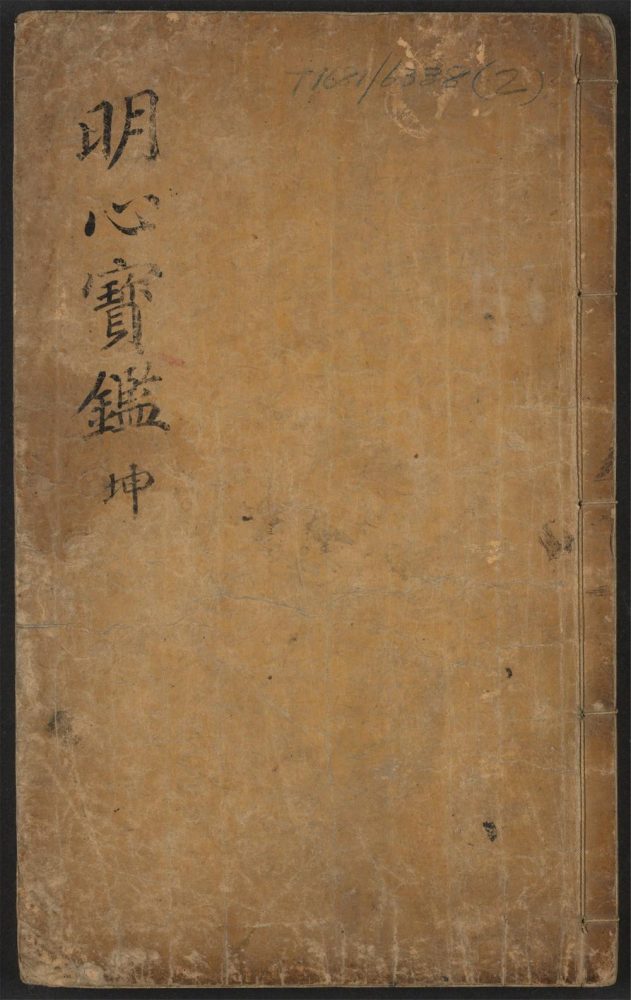 T1681/6338(2)
明心寶鑑 坤